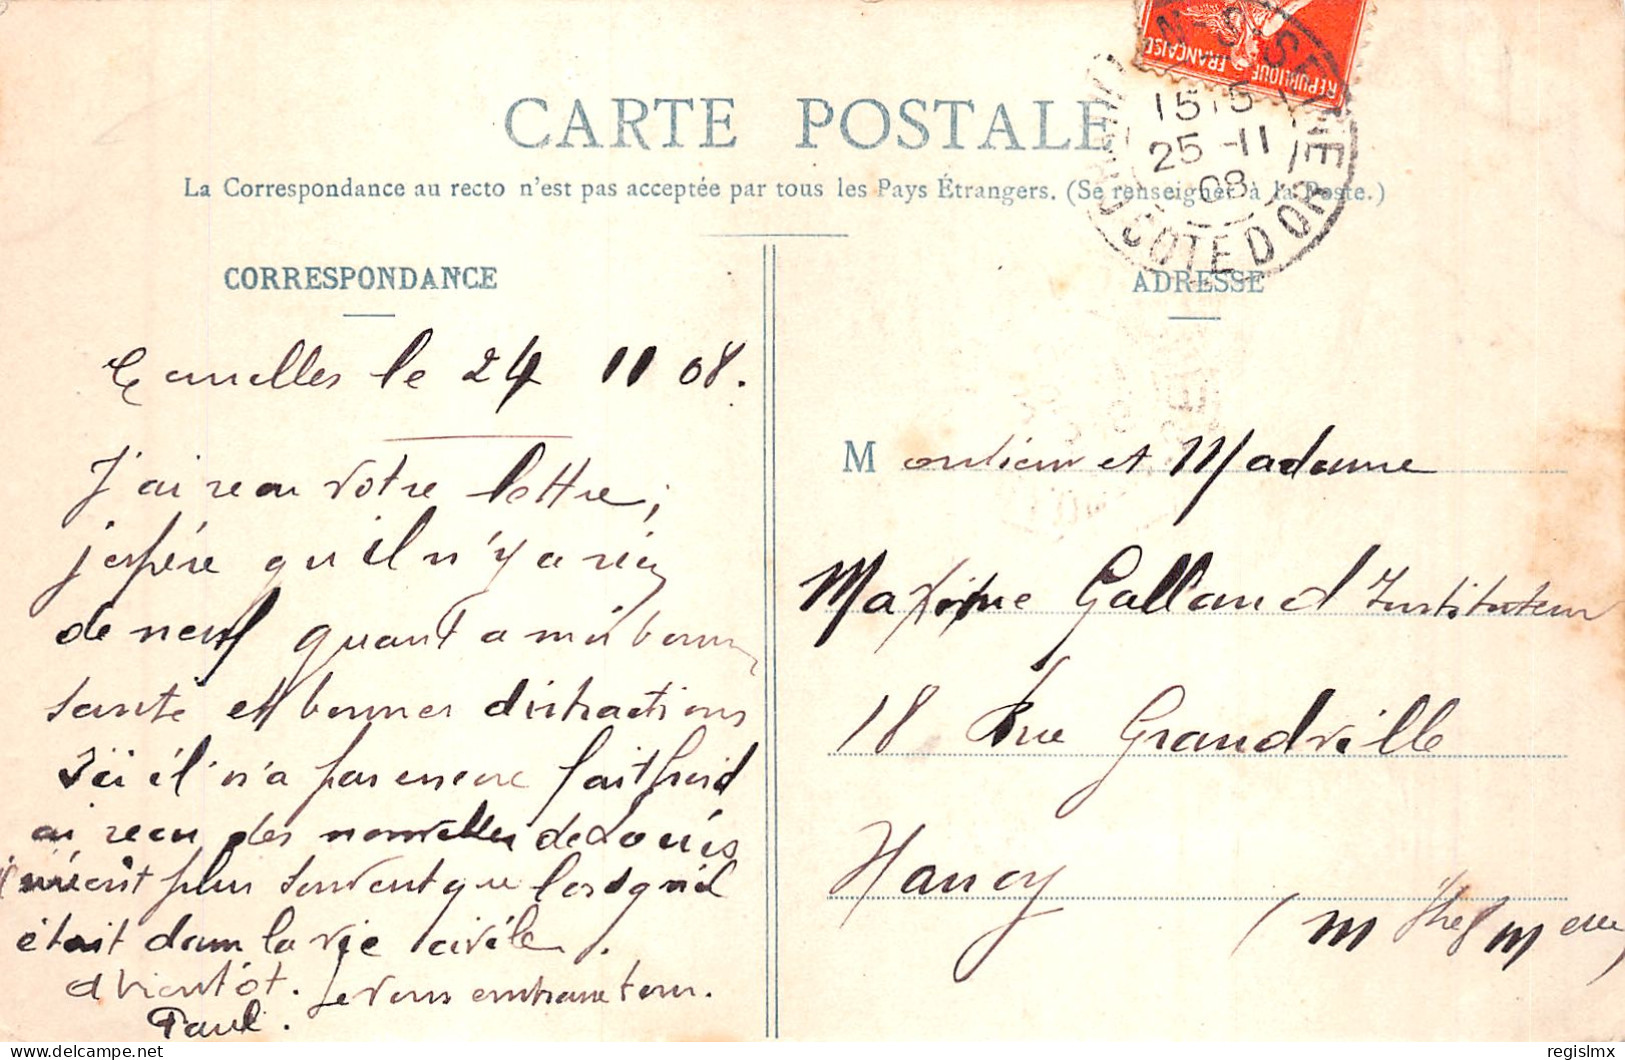 CARTE POSTALE
La Correspondance au recto n'est pas acceptée par tous les Pays Étrangers. (Se renseigner à la Poste.)
REPUBLIQUE FRANÇAISE
S-SEINE
15
25 -11
08
COTE D'OR
CORRESPONDANCE
le 24 11 08.
J'ai recu votre lettre,
j'espère qu'il n'y a rien
de neuf quant a moi bonne
santé et bonnes distractions
ici il n'a pas encore fait froid
ai recu des nouvelles de Louis
écrit plus souvent que lorsqu'il
était dans la vie civile.
a bientôt. Je vous embrasse tous.
Paul.
ADRESSE
Monsieur et Madame
Maxime Galland Instituteur
18 Rue Grandville
Nancy
(Mthe & Melle)
regislmx